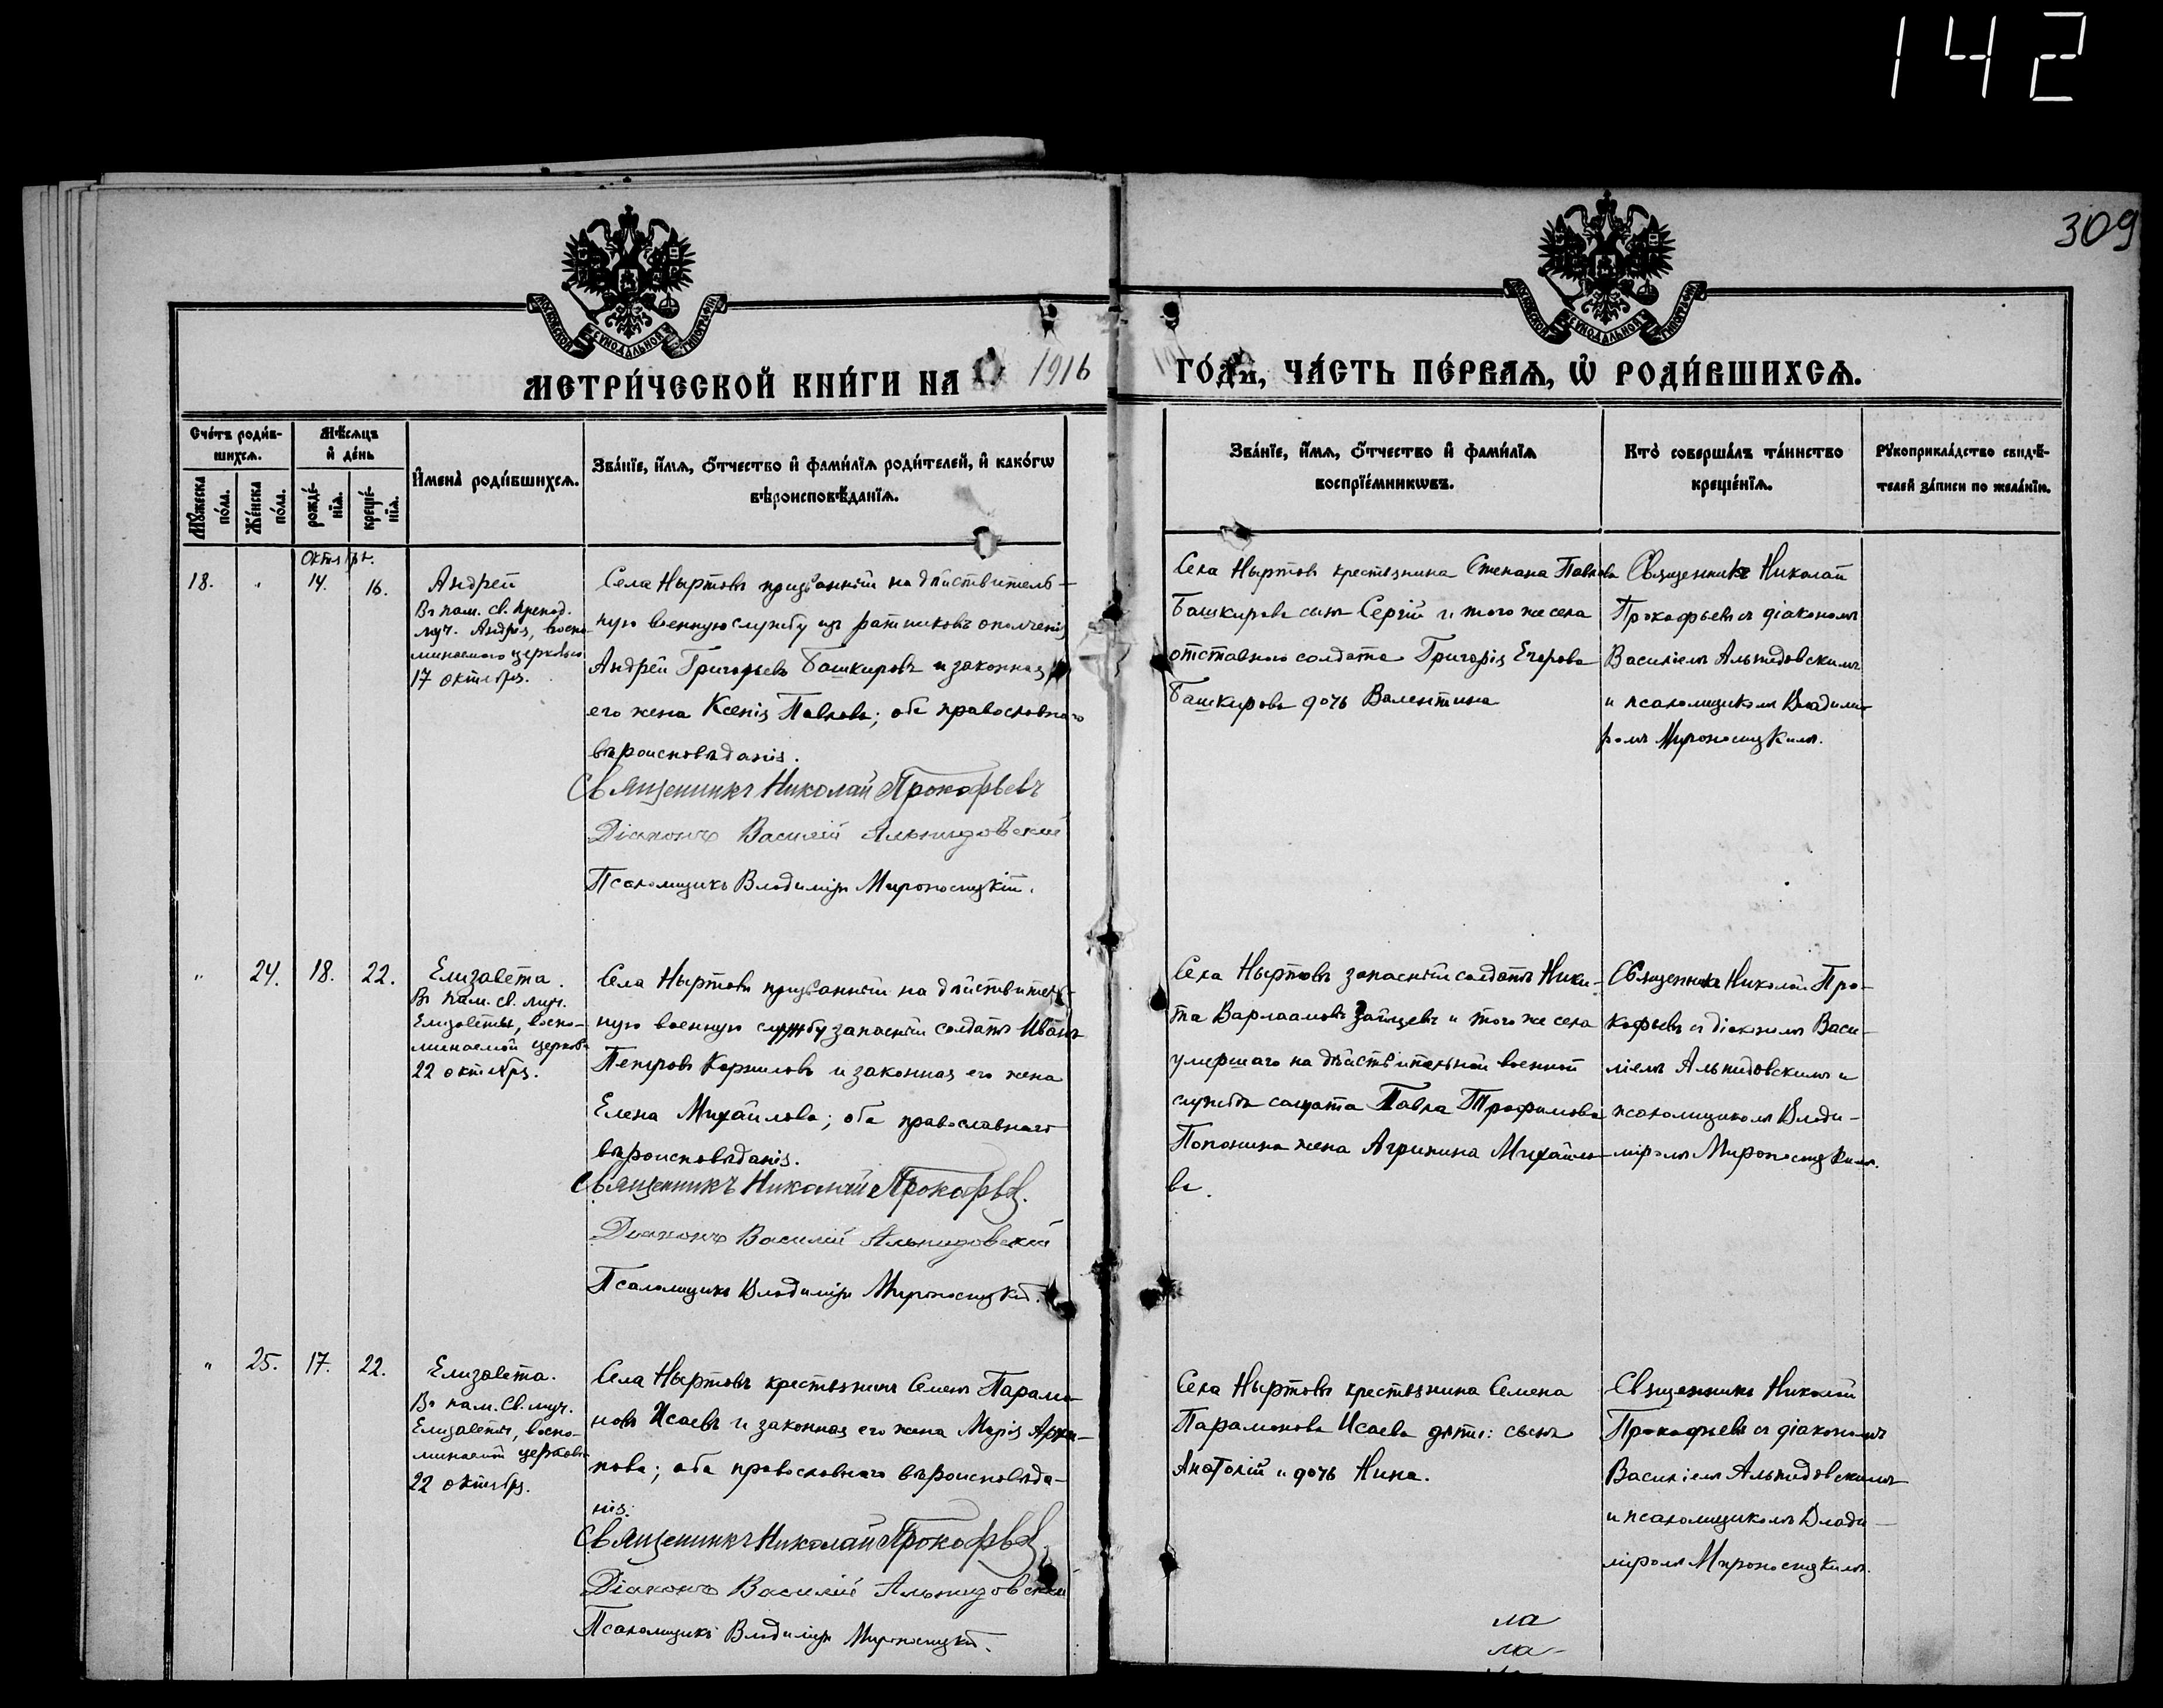 142
309
МОСКОВСКОЙ СѴНОДАЛЬНОЙ ТИПОГРАФІИ
МОСКОВСКОЙ СѴНОДАЛЬНОЙ ТИПОГРАФІИ
МЕТРИ́ЧЕСКОЙ КНИ́ГИ НА 1916 ГО́ДЪ, ЧА́СТЬ ПЕ́РВАѦ, Ѡ҆ РОДИ́ВШИХСѦ.
Сче́тъ роди́в-
шихсѧ.
Мѣ́сѧцъ
и҆ де́нь
Мꙋ́жеска по́ла.
Же́нска по́ла.
рожде́-
нїѧ.
креще́-
нїѧ.
И҆мена̀ роди́вшихсѧ.
Зва́нїе, и҆́мѧ, ѻ҆́тчество и҆ фами́лїѧ роди́телей, и҆ како́гѡ
вѣроисповѣ́данїѧ.
Зва́нїе, и҆́мѧ, ѻ҆́тчество и҆ фами́лїѧ
воспрїе́мникѡвъ.
Кто̀ соверша́лъ та́инство
креще́нїѧ.
Рꙋкоприкла́дство свидѣ́-
телей за́писи по жела́нїю.
Октябрь.
18.
"
14.
16.
Андрей
Въ пам. св. препод.
муч. Андрея, воспо-
минаемаго церковью
17 октября.
Села Ныртовъ призванный на действитель-
ную военную службу из ратниковъ ополченія
Андрей Григорьевъ Башкировъ и законная
его жена Ксенія Павлова; оба православнаго
вѣроисповѣданія.
Священникъ Николай Прокофьевъ
Діаконъ Василій Альпидовскій
Псаломщикъ Владиміръ Мироносицкій.
Села Ныртовъ крестьянина Степана Павлова
Башкирова сынъ Сергій и того же села
отставного солдата Григорія Егорова
Башкирова дочь Валентина
Священникъ Николай
Прокофьевъ съ діакономъ
Василіемъ Альпидовскимъ
и псаломщикомъ Владимі-
ромъ Мироносицкимъ.
"
24.
18.
22.
Елизавета.
Въ пам. св. муч.
Елизаветы, воспо-
минаемой церковью
22 октября.
Села Ныртовъ призванный на действитель-
ную военную службу запасный солдатъ Иванъ
Петровъ Корниловъ и законная его жена
Елена Михайлова; оба православнаго
вѣроисповѣданія.
Священникъ Николай Прокофьевъ.
Діаконъ Василій Альпидовскій
Псаломщикъ Владиміръ Мироносицкій.
Села Ныртовъ запасный солдатъ Ники-
та Варлаамовъ Зайцевъ и того же села
умершаго на действительной военной
службѣ солдата Павла Трофимова
Попонина жена Агрипина Михайло-
ва.
Священникъ Николай Про-
кофьевъ съ діакономъ Васи-
ліемъ Альпидовскимъ и
псаломщикомъ Влади-
міромъ Мироносицкимъ.
"
25.
17.
22.
Елизавета.
Въ пам. св. муч.
Елизаветы, воспо-
минаемой церковью
22 октября.
Села Ныртовъ крестьянинъ Семенъ Парамо-
новъ Исаевъ и законная его жена Марія
нова; оба православнаго вѣроисповѣда-
нія.
Священникъ Николай Прокофьевъ
Діаконъ Василій Альпидовскій
Псаломщикъ Владиміръ Мироносицкій.
Села Ныртовъ крестьянина Семена
Парамонова Исаева дѣти: сынъ
Анатолій и дочь Нина.
Священникъ Николай
Прокофьевъ съ діакономъ
Василіемъ Альпидовскимъ
и псаломщикомъ Влади-
міромъ Мироносицкимъ.
ла
ла